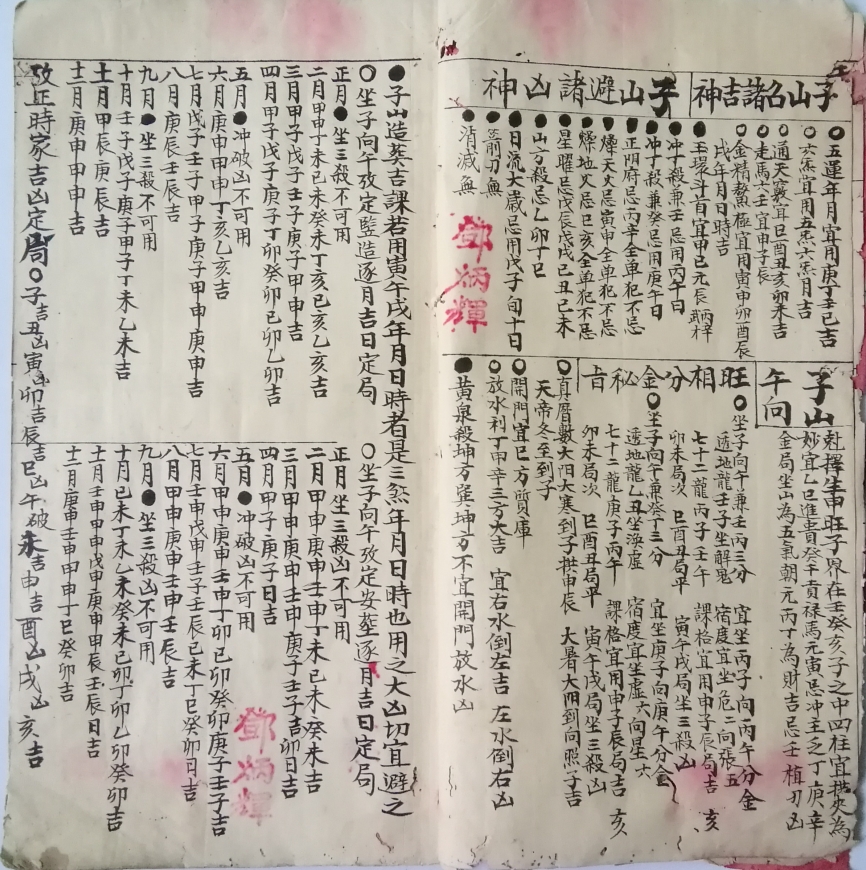 子山名諸吉神
○五運年月宜用庚丁壬己吉
○六炁宜用五炁六炁月吉
○通天竅宜巳酉丑亥卯未吉
○走馬六壬宜申子辰
○金精鰲極宜用寅申卯酉辰
戌年月日時吉
玉環斗首宜甲己元辰
子山避諸凶神
●冲十殺兼壬忌用丙午日
●冲十殺兼癸忌用庚午日
●正阴府忌丙辛全单犯不忌
●燥天火忌寅申全单犯不忌
●燥地火忌巳亥全单犯不忌
●星曜忌戊辰戊戌己丑己未
●山方殺忌乙卯丁巳
●日流大歲忌用戊子旬十日
●箭刃無
●消滅無
鄧炳輝
子山
午向
金局坐山為五氣朝元丙丁為財吉忌壬
旺相分金秘旨
○坐子向午兼壬丙三分 宜坐丙子向丙午分金
透地龍壬子坐解鬼 宿度宜坐危二向張五
七十二龍丙子壬午 課格宜用申子辰局吉 亥
卯未局次 巳酉丑局平 寅午戌局坐三殺凶
○坐子向午兼癸丁三分 宜坐庚子向庚午分金
透地龍乙丑坐渙虛 宿度宜坐虛六向星六
七十二龍庚子丙午 課格宜用申子辰局吉 亥
卯未局次 巳酉丑局平 寅午戌局坐三殺凶
○真曆數大阳大寒到子拱申辰 大暑大阳到向照子吉
天帝冬至到子
○開門宜巳方質庫
○放水利丁甲辛三方大吉 宜右水倒左吉 左水倒右凶
●黃泉殺坤方巽坤方不宜開門放水凶
●子山造葬吉課若用寅午戌年月日時者是三煞年月日時也用之大凶切宜避之
○坐子向午攷定監造逐月吉日定局
正月●坐三殺不可用
二月甲申丁未己未癸未丁亥己亥乙亥吉
三月甲子戊子壬子庚子甲申吉
四月甲子戊子庚子丁卯癸卯己卯乙卯吉
五月●冲破凶不可用
六月庚申甲申丁亥乙亥吉
七月戊子壬子甲子庚子甲申庚申吉
八月庚辰壬辰吉
九月●坐三殺不可用
十月壬子戊子庚子甲子丁未乙未吉
十一月甲辰庚辰吉
十二月庚申甲申吉
○坐子向午攷定安塟逐月吉日定局
正月坐三殺凶不可用
二月甲申庚申壬申丁未己未癸未吉
三月甲申庚申壬申庚子壬子吉卯日吉
四月甲子庚子日吉
五月●冲破凶不可用
六月甲申庚申壬申丁卯己卯癸卯庚子壬子吉
七月壬申戊申壬子壬辰己未丁巳癸卯日吉
八月甲申庚申壬申壬辰吉
九月●坐三殺凶不可用
十月己未丁未乙未癸未己卯丁卯乙卯癸卯吉
十一月壬申甲申戊申庚申甲辰壬辰日吉
十二月庚申壬申甲申丁巳癸卯吉
鄧炳輝
攷正時家吉凶定局○子吉丑凶寅凶卯吉辰吉巳凶午破未吉申吉酉凶戌凶亥吉